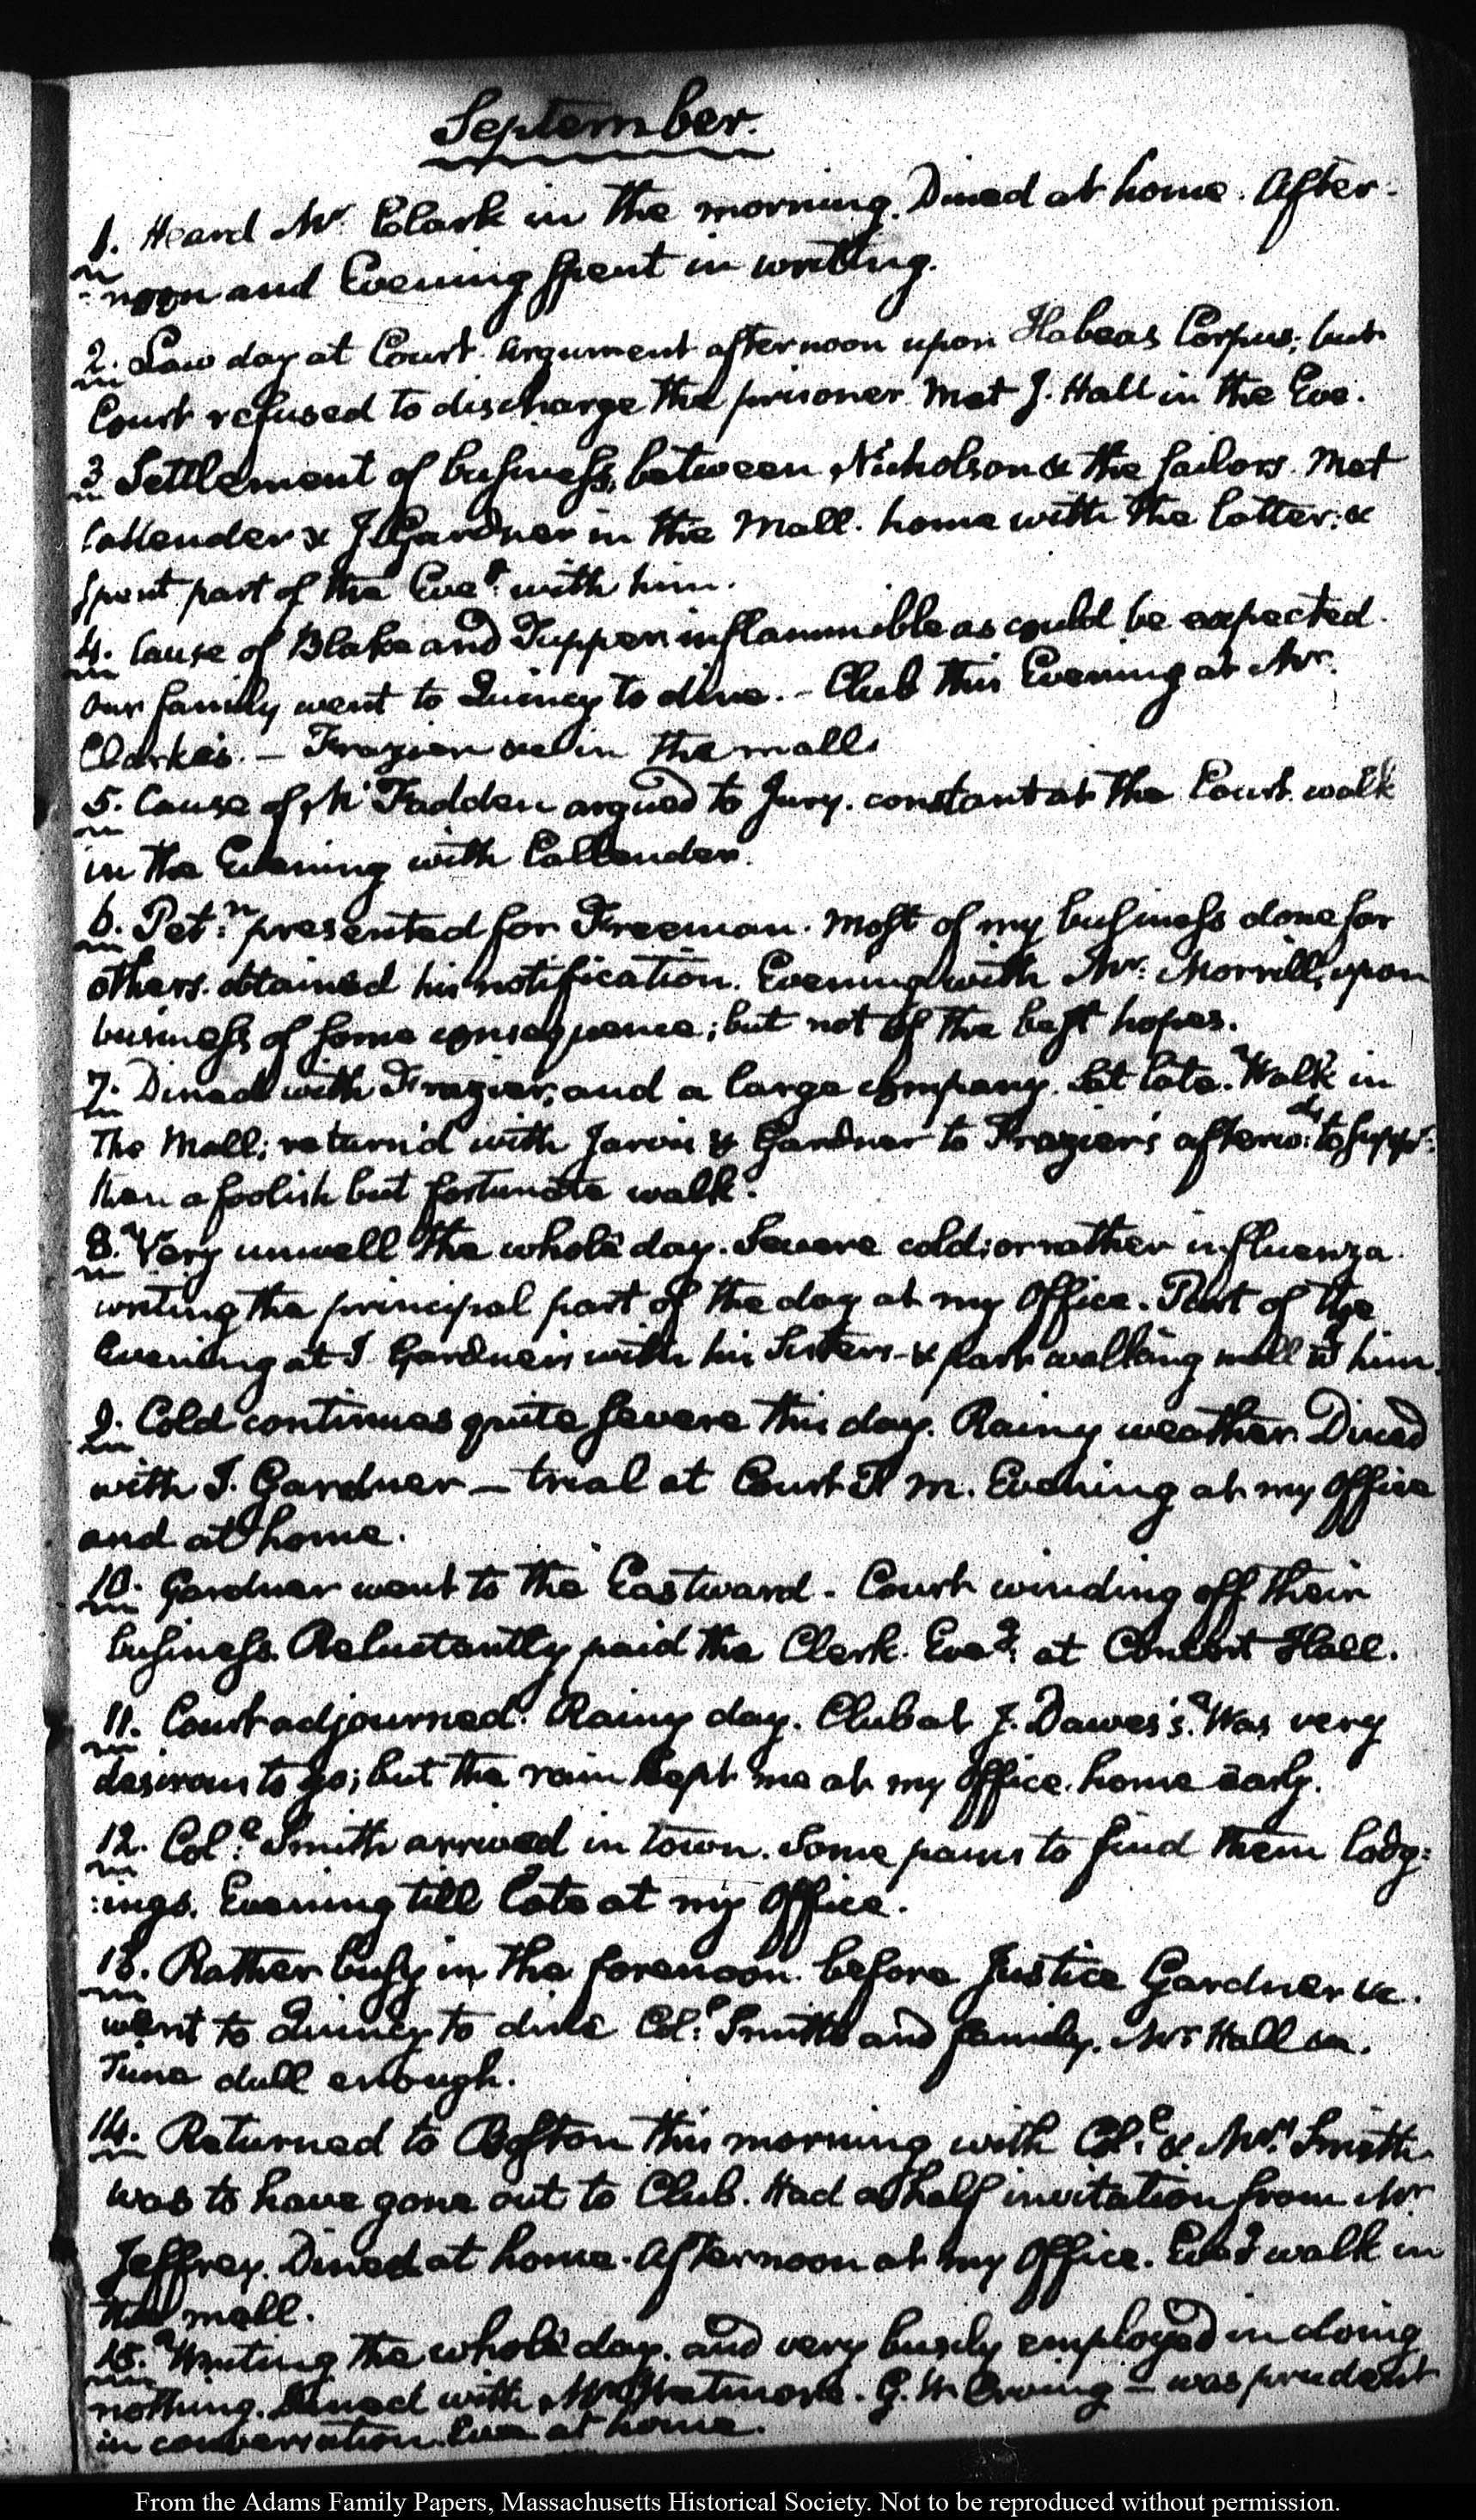 September.
1. Heard Mr. Clark in the morning. Dined at home. After-
-noon and Evening spent in writing.
2. Law day at Court. Argument afternoon upon Habeas Corpus; but
Court refused to discharge the prisoner. Met J. Hall in the Eve.
3 Settlement of business, between Nicholson & the sailors. Met
Callender & J. Gardner in the Mall. home with the latter; &
spent part of the Eveg. with him.
4. Cause of Blake and Tupper inflammible as could be expected.
our family went to Quincy to dine. - Club this Evening at Mr.
Clarke's. - Frazier &c in the mall.
5. Cause of McFadden argued to Jury. constant at the Court. walk
in the Evening with Callender.
6. Petn: presented for Freeman. most of my business done for
others. obtained his notification. Evening with Mr: Morrill, upon
business of some consequence; but not of the best hopes.
7. Dined with Frazier, and a large company. Sat late. Walk in
the Mall; return'd with Jarvis & Gardner to Frazier's afterwds: to suppr:
then a foolish but fortunate walk.
8. Very unwell the whole day. Severe cold; or rather influenza.
writing the principal part of the day at my Office. Part of the
Evening at J. Gardner's with his Sisters - & part walking mall wh him.
9. Cold continues quite severe this day. Rainy weather. Dined
with J. Gardner - trial at Court P. M. Evening at my Office
and at home.
10. Gardner went to the Eastward. Court winding off their
business. Reluctantly paid the Clerk. Eveg: at Concert Hall.
11. Court adjourned. Rainy day. Club at J. Dawes's. Was very
desirous to go; but the rain kept me at my Office. home early.
12. Coll: Smith arrived in town. Some pains to find them lodg:
:ings. Evening till late at my Office.
13. Rather busy in the forenoon. before Justice Gardner &c.
went to Quincy to dine Coll: Smith and family. Mrs Hall &c.
Time dull enough.
14. Returned to Boston this morning with Coll: & Mrs: Smith
was to have gone out to Club. Had a half invitation from Mr
Jeffrey. Dined at home. Afternoon at my Office. Eveg walk in
the mall.
15. Writing the whole day. and very busily employed in doing
nothing. Dined with Mr Wetmore. G. W. Erving - was prudent
in conversation. Eve at home.
From the Adams Family Papers, Massachusetts Historical Society. Not to be reproduced without permission.